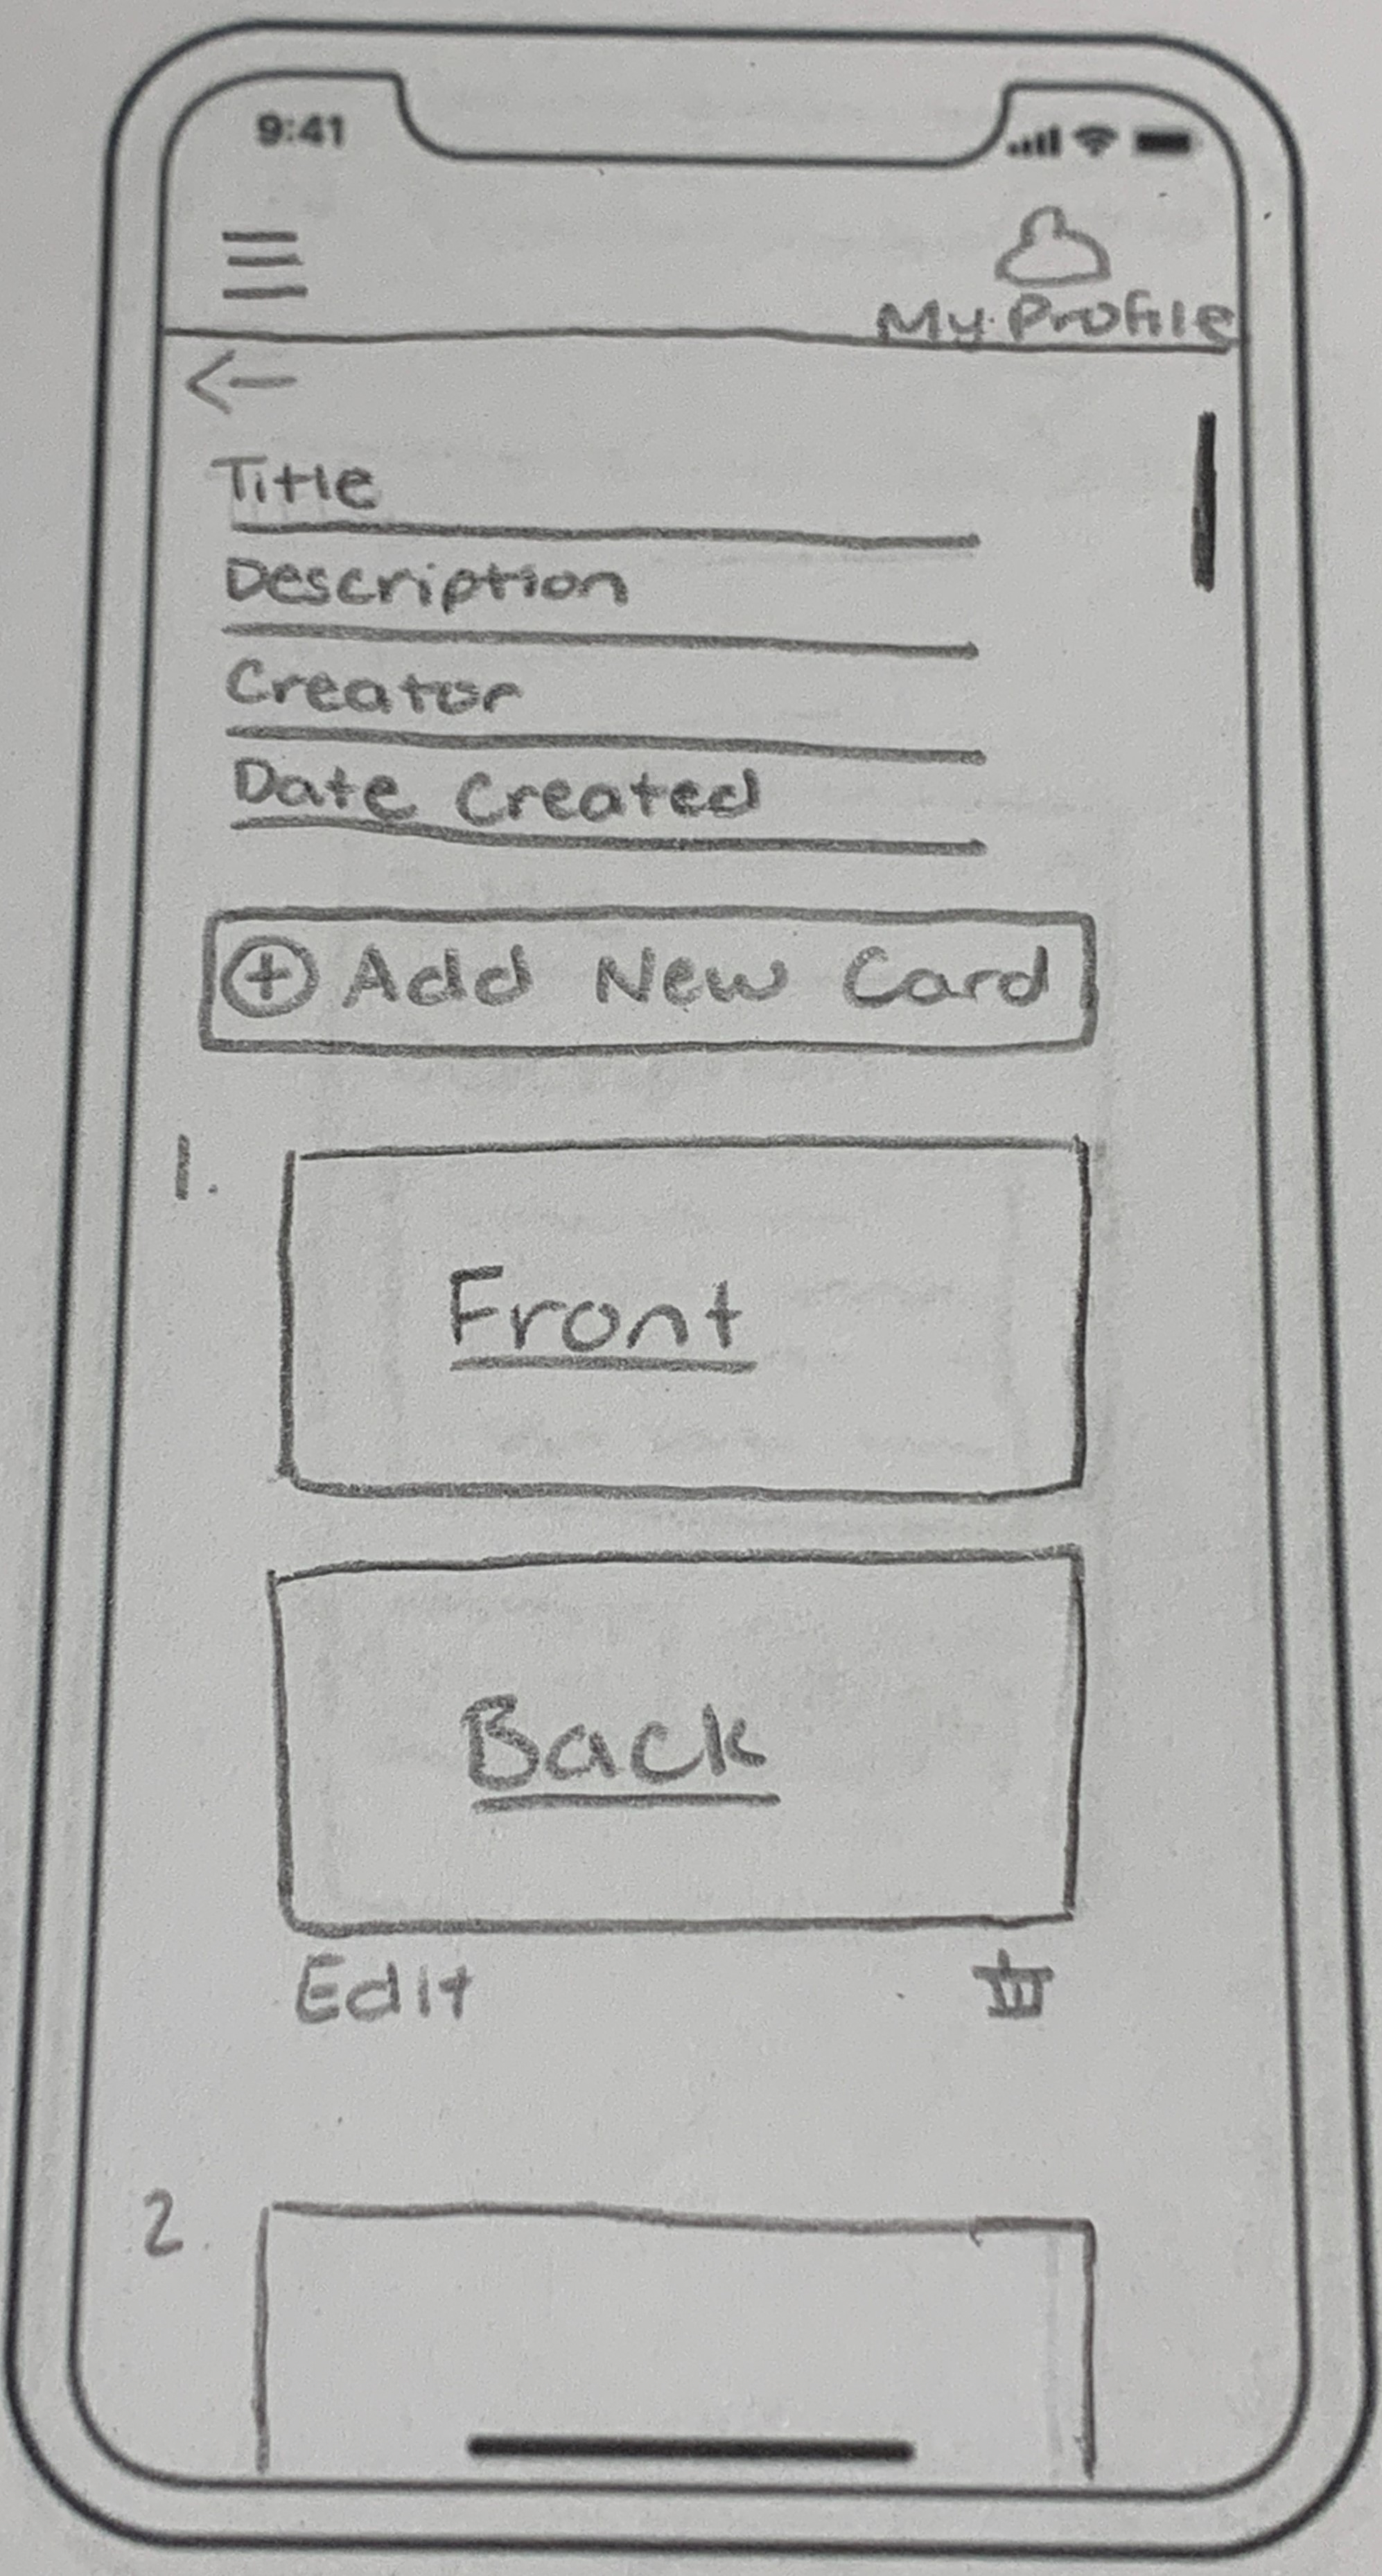 9:41
My Profile
Title
Description
Creator
Date Created
Add New Card
1.
Front
Back
Edit
2.